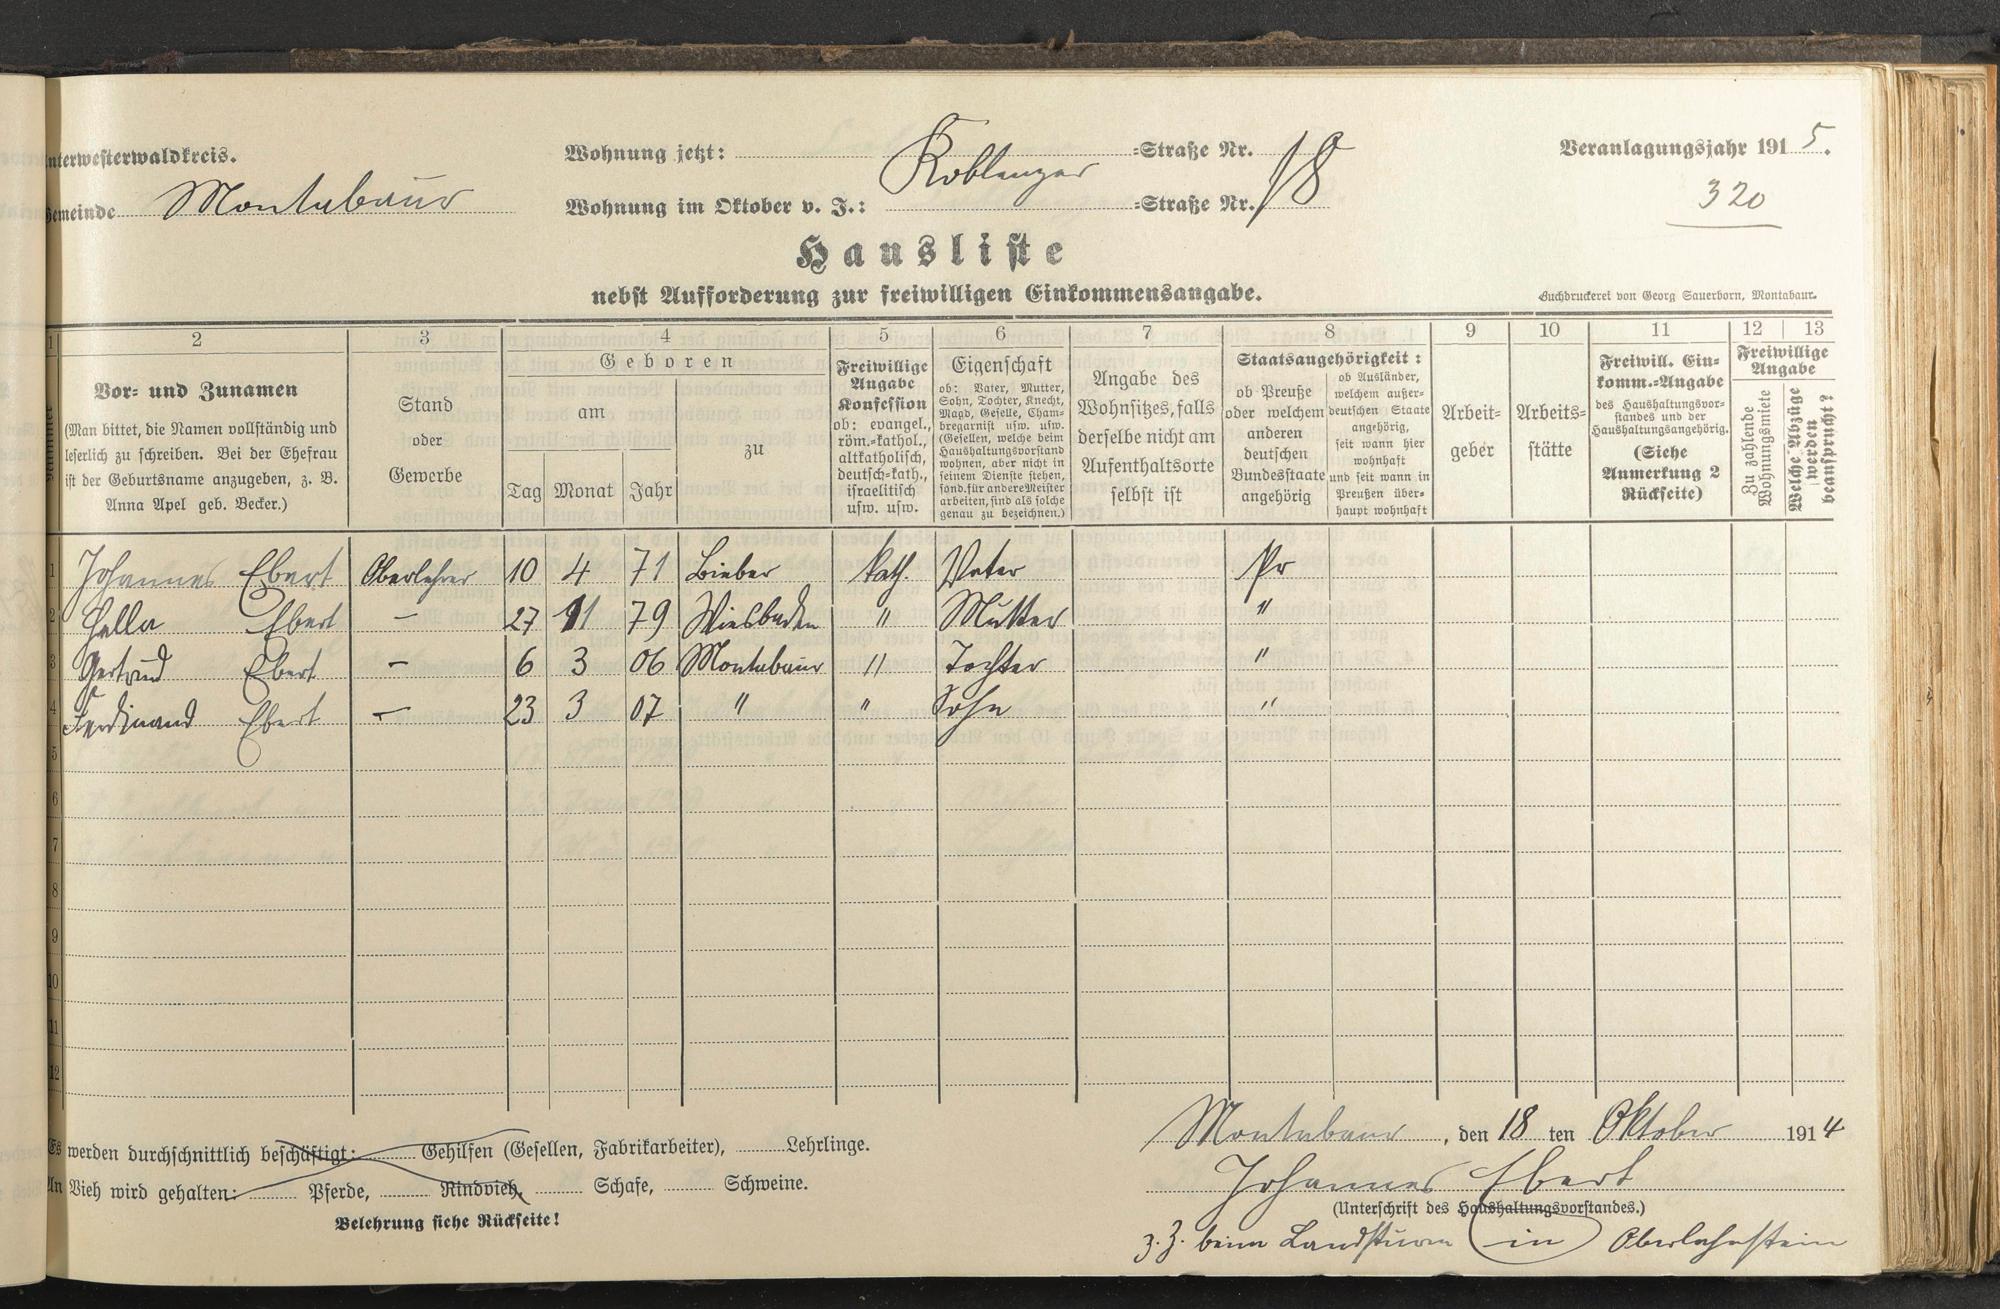 Unterwesterwaldkreis.
Gemeinde Montabaur
Wohnung jetzt: Koblenzer =Straße Nr. 18
Wohnung im Oktober v. J.: =Straße Nr.
Veranlagungsjahr 1915.
320
Hausliste
nebst Aufforderung zur freiwilligen Einkommensangabe.
Buchdruckerei von Georg Sauerborn, Montabaur.
1 2 3 4 5 6 7 8 9 10 11 12 13
Nummer
Vor- und Zunamen
(Man bittet, die Namen vollständig und
leserlich zu schreiben. Bei der Ehefrau
ist der Geburtsname anzugeben, z. B.
Anna Apel geb. Becker.)
Stand
oder
Gewerbe
Geboren
am
Tag Monat Jahr
zu
Freiwillige
Angabe
Konfession
ob: evangel.,
röm.-kathol.,
altkatholisch,
deutsch-kath.,
israelitisch
usw. usw.
Eigenschaft
ob: Vater, Mutter,
Sohn, Tochter, Knecht,
Magd, Geselle, Cham-
bregarnist usw. usw.
(Gesellen, welche beim
Haushaltungsvorstand
wohnen, aber nicht in
seinem Dienste stehen,
sond. für andere Meister
arbeiten, sind als solche
genau zu bezeichnen.)
Angabe des
Wohnsitzes, falls
derselbe nicht am
Aufenthaltsorte
selbst ist
Staatsangehörigkeit:
ob Preuße
oder welchem
anderen
deutschen
Bundesstaate
angehörig
ob Ausländer,
welchem außer-
deutschen Staate
angehörig,
seit wann hier
wohnhaft
und seit wann in
Preußen über-
haupt wohnhaft
Arbeit-
geber
Arbeits-
stätte
Freiwill. Ein-
komm.-Angabe
des Haushaltungsvor-
standes und der
Haushaltungsangehörig.
(Siehe
Anmerkung 2
Rückseite)
Freiwillige
Angabe
Zu zahlende
Wohnungsmiete
Welche Abzüge
werden
beansprucht?
1 Johannes Ebert Oberlehrer 10 4 71 Bieber kath. Vater Pr
2 Hella Ebert — 27 11 79 Wiesbaden " Mutter "
3 Gertrud Ebert — 6 3 06 Montabaur " Tochter "
4 Ferdinand Ebert — 23 3 07 " " Sohn "
5
6
7
8
9
10
11
12
Es werden durchschnittlich beschäftigt: Gehilfen (Gesellen, Fabrikarbeiter), Lehrlinge.
An Vieh wird gehalten: Pferde, Rindvieh, Schafe, Schweine.
Belehrung siehe Rückseite!
Montabaur, den 18 ten Oktober 1914
Johannes Ebert
(Unterschrift des Haushaltungsvorstandes.)
z. Z. beim Landsturm in Oberlahnstein